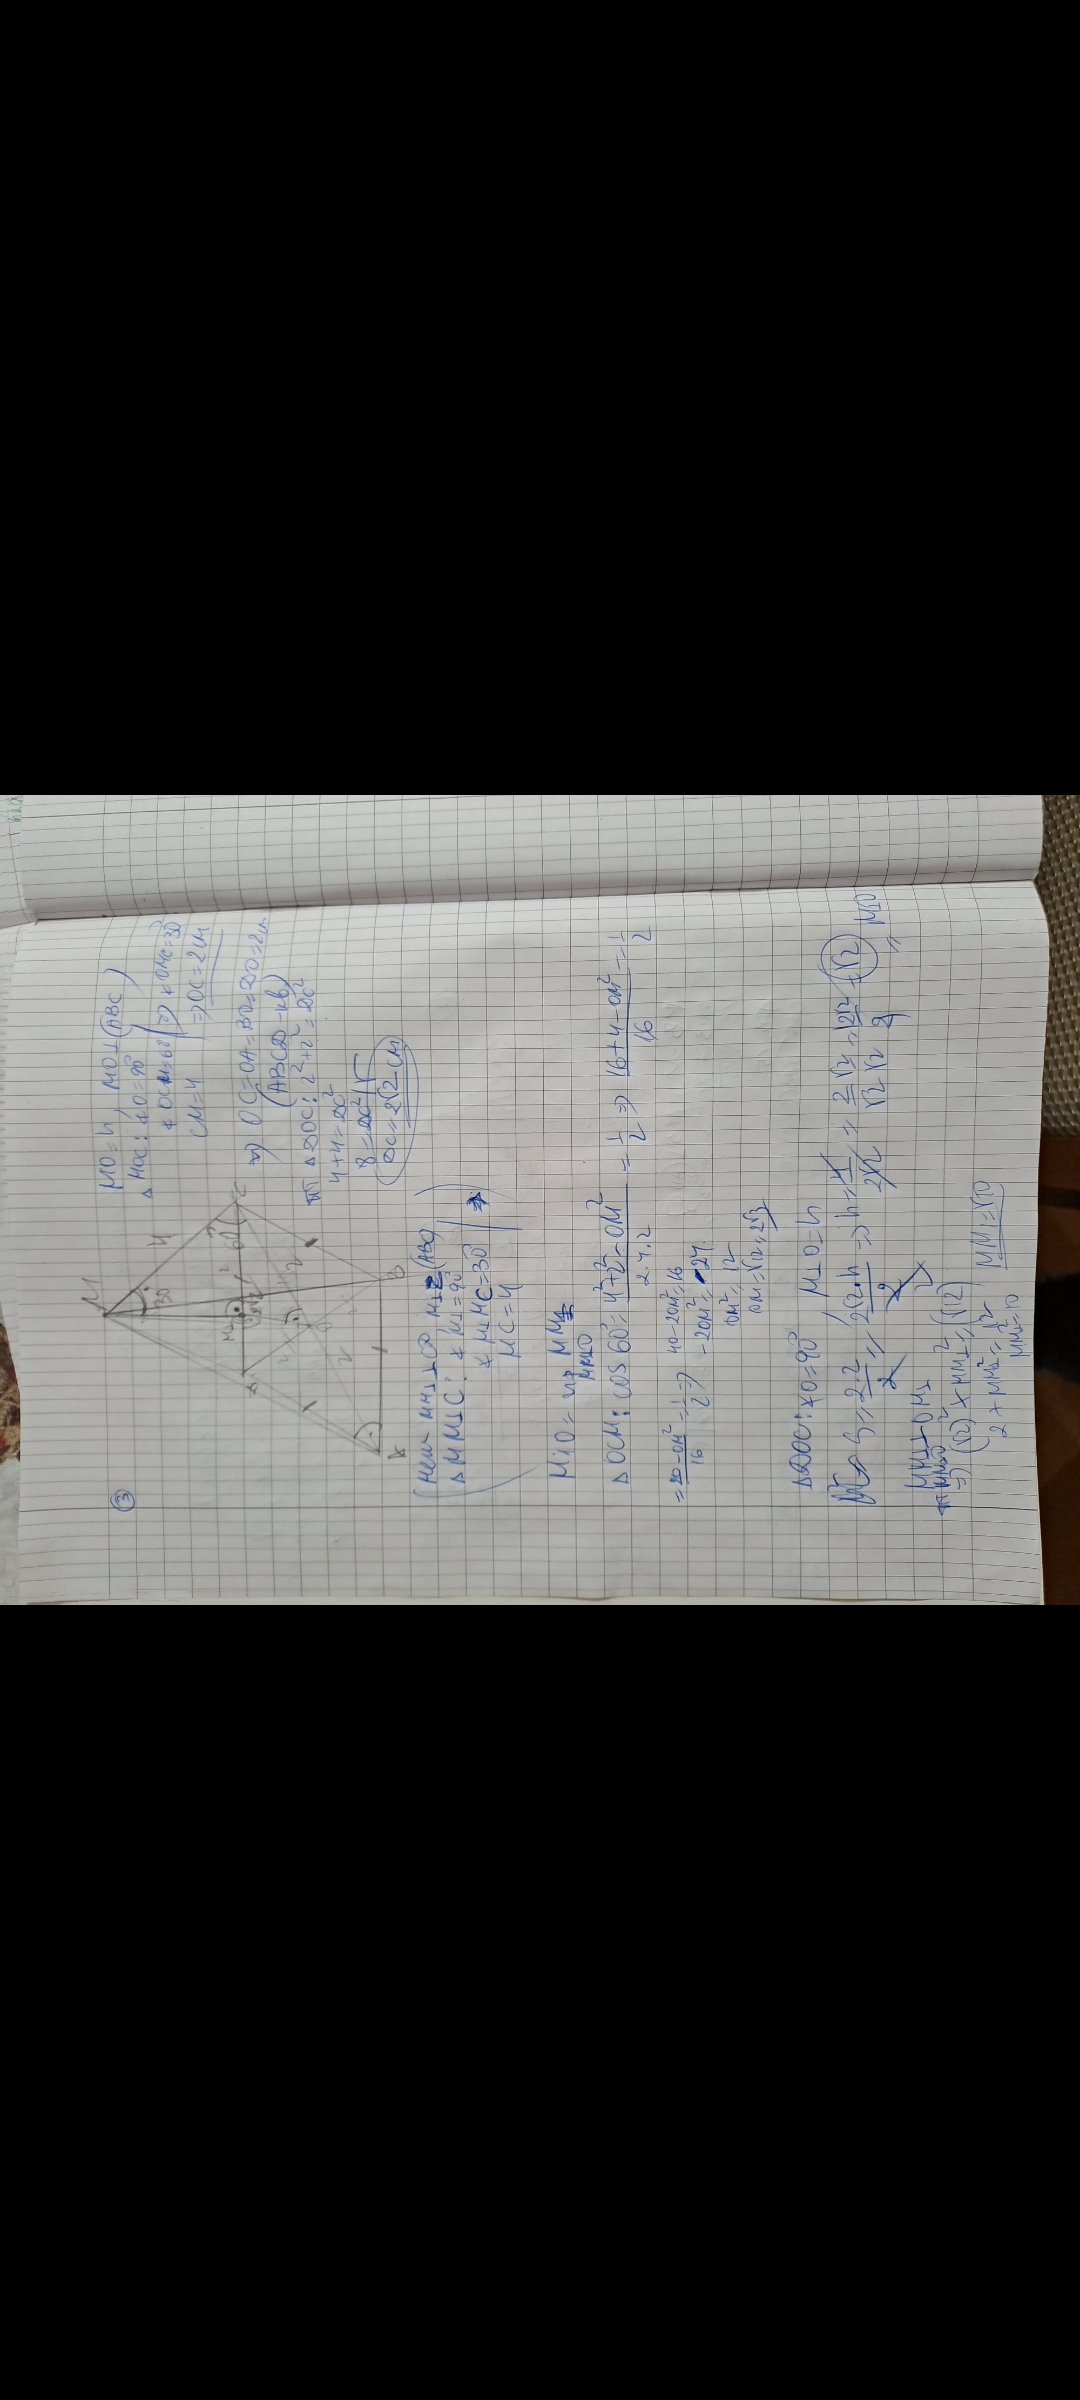 ③
M
4
30
C
60
M₁
D
2
2
2
O
B
A
MO = h, MO ⊥ (ABC)
△ MOC: ∢O = 90°
∢OCM = 60° | => ∢OMC = 30°
CM = 4 => OC = 2cm
=> OC = OA = BO = DO = 2cm
(ABCD - кв)
△DOC: 2² + 2² = DC²
4 + 4 = DC²
8 = DC² | √
DC = 2√2 cm
(Нека MM₁ ⊥ CD
△ MM₁C: ∢M₁ = 90°
∢M₁MC = 30°
MC = 4
M₁O = пр MM₁
△ OCM: cos 60° = (4² + 2² - OM²) / (2.4.2) = 1/2 => (16 + 4 - OM²) / 16 = 1/2
= (20 - OM²) / 16 = 1/2 => 40 - 2OM² = 16
-2OM² = -24
OM² = 12
OM = √12 = 2√3
△DOC: ∢O = 90° / M₁O = h
S = 2.2 / 2 = 2√2.h / 2 => h = 4 / 2√2 = 2 / √2 . √2 / √2 = 2√2 / 2 = √2 = M₁O
MM₁
=> (√2)² + MM₁² = (√12)²
2 + MM₁² = 12
MM₁² = 10
MM₁ = √10